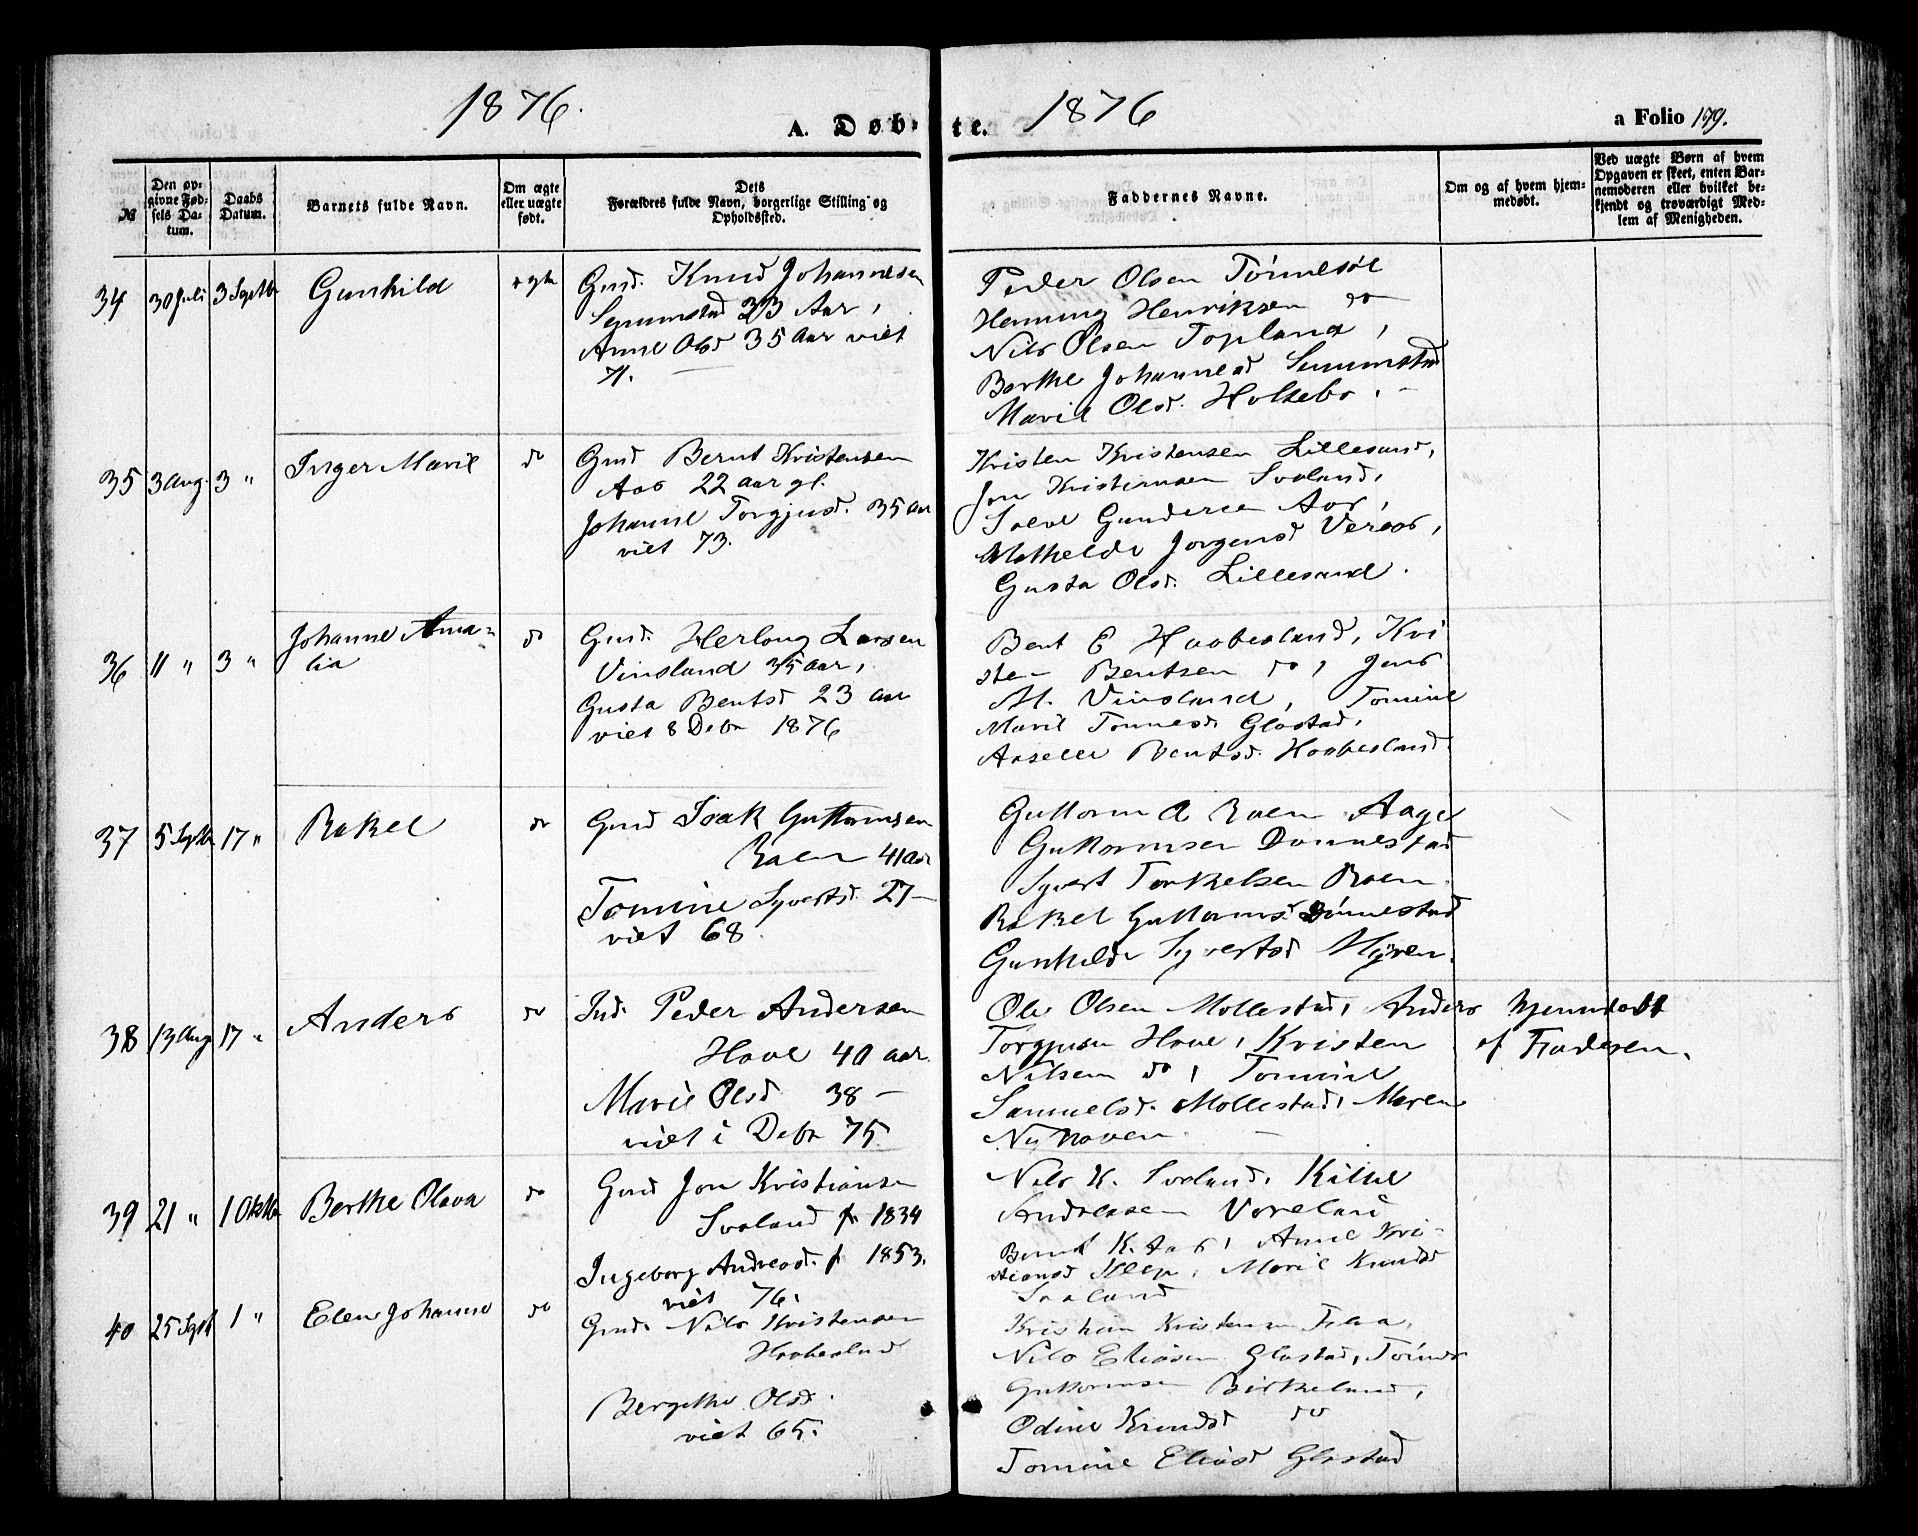 1876.
1876
A. Døb-
te.
a Folio 179.
№
Den opgivne Fødsels Datum.
Daabs Datum.
Barnets fulde Navn.
Om ægte eller uægte født.
Dets Forældres fulde Navn, borgerlige Stilling og Opholdssted.
Faddernes Navne.
Om og af hvem hjemmedøbt.
Ved uægte Børn af hvem Opgaven er skeet, enten Barnemoderen eller hvilket bekjendt og troværdigt Medlem af Menigheden.
34 30 Juli 3 Septbr Gunhild ægte
Gmd. Knud Johannesen
23 Aar,
Anne Olsd 35 Aar viet
71.
Peder Olsen Tønnesøl
Henning Henriksen do
Nils Olsen Topland,
Berthe Johannesd
Marie Olsd. Holtebo.
35 3 Aug. 3 " Inger Marie do
Gmd Bernt Kristensen
Aas 22 aar gl.
Johanne Torgjusd. 35 aar
viet 73.
Kristen Kristensen Lillesand,
Jon Kristensen Svaland,
Gundersen Aas,
Mathilde Jørgensd
Gusta Olsd. Lillesand.
36 11 " 3 " Johanne Ama-
lia do
Gmd. Herlong Larsen
Vinsland 35 aar,
Gusta Bentsd 23 aar
viet 8 Debr 1876
Bent E Haabesland, Kri
sten Bentsen do, Jens
M. Vinsland, Tomine
Marie Tønnesd. Glastad,
Aaselle Bentsd. Haabesland.
37 5 Septbr 17 " Rakel do
Gmd Isak Guttormsen
Raen 41 aar
Tomine Syvertsd. 27 —
viet 68.
Guttorm A Raen Aage
Guttormsen Dønnestad
Syvert Torkelsen Raen.
Rakel Guttormsd Dønnestad
Gunhilde Syvertsd Myren.
38 13 Aug 17 " Anders do
Ind. Peder Andersen
Hove 40 aar.
Marie Olsd 38 —
viet i Debr 75
Ole Olsen Mollestad, Anders
Torgjusen Hove, Kristen
Nilsen do, Tomine
Samuelsd. Mollestad, Maren
hjemmedøbt
af Faderen.
39 21 " 1 Oktbr Berthe Olava do
Gmd Jon Kristiansen
Svaland f 1834
Ingeborg Andreasd. f 1853.
viet 76.
Nils K. Svaland, Kittel
Andreasen
Bernt K. Aas, Anne Kri-
stiansd Klep, Marie Knudsd
Svaland
40 25 Sept 1 " Elen Johanne do
Gmd. Nils Kristensen
Haabesland
Bergithe Olsd.
viet 65.
Nils Eliasen Glastad, Tønnes
Guttormsen Birkeland,
Odine Knudsd do
Tomine Eliasd Glastad